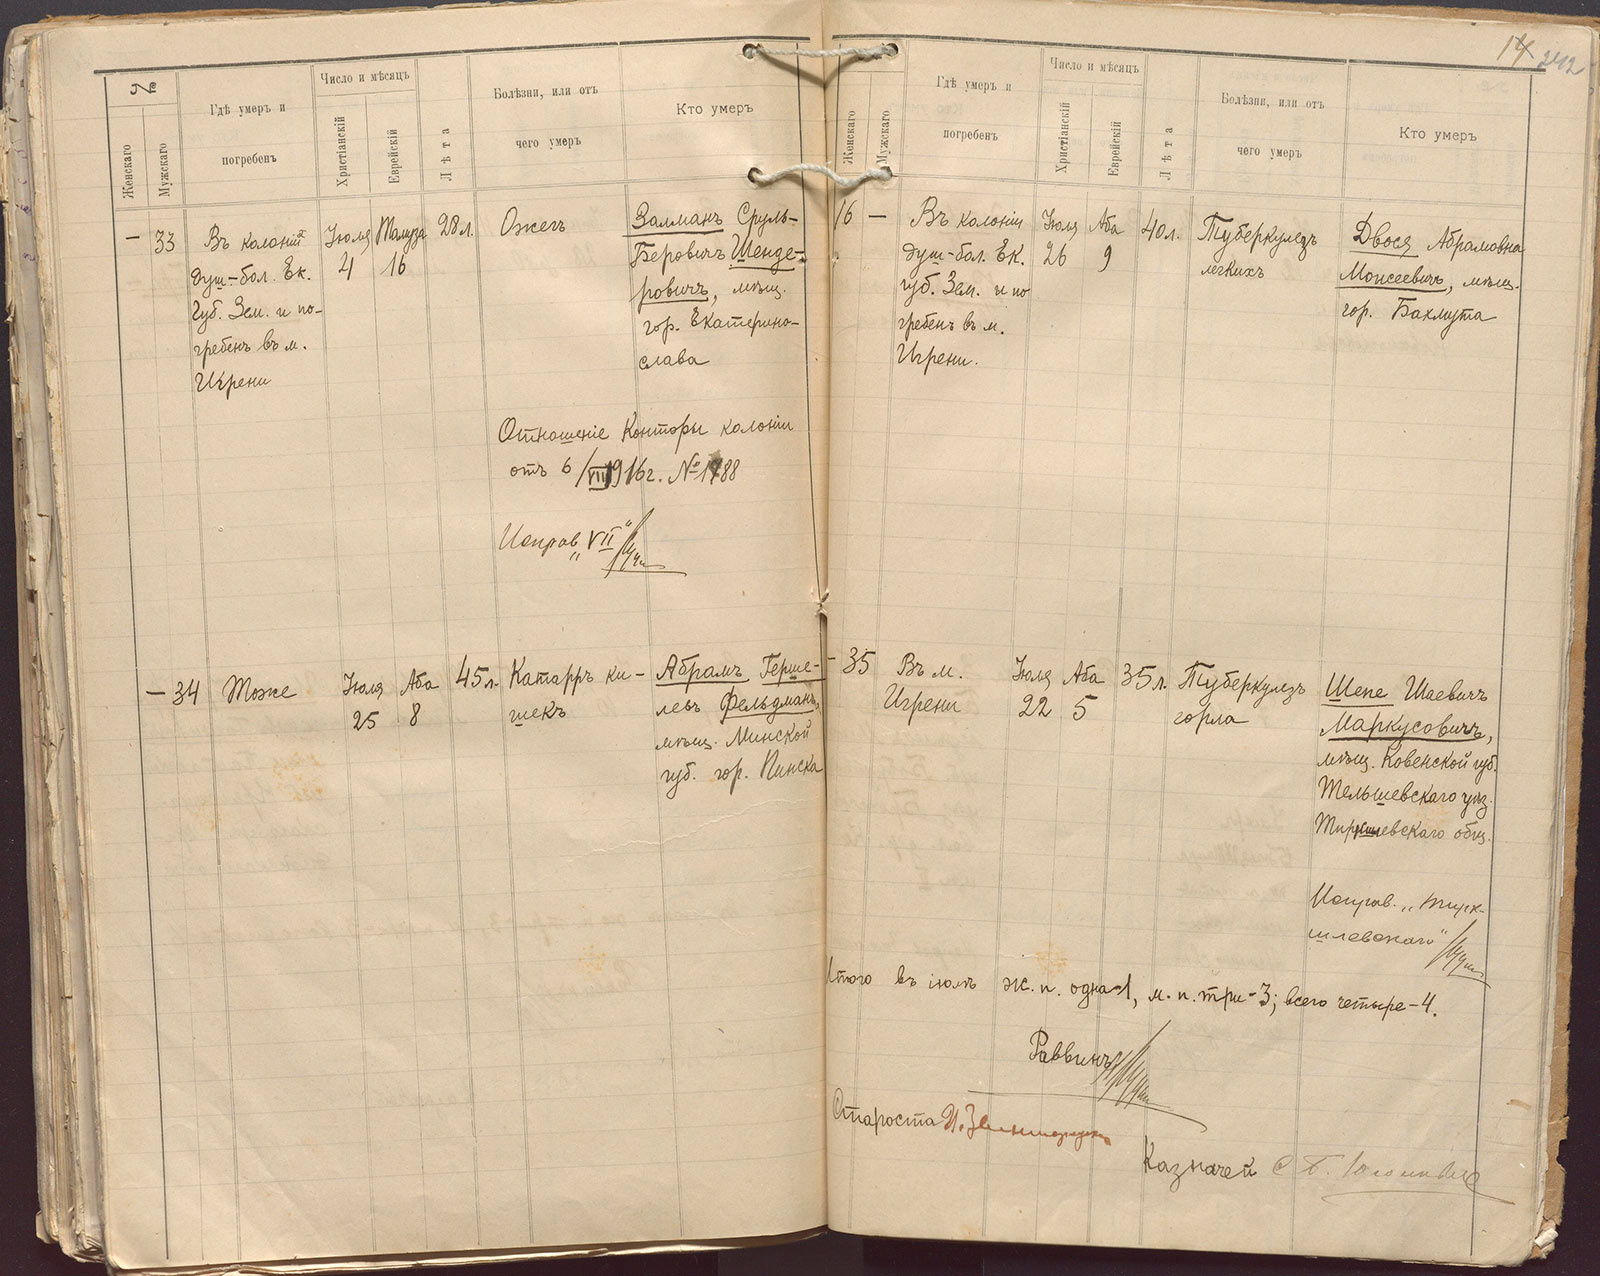 №
Женскаго
Мужскаго
Гдѣ умеръ и
погребенъ
Число и мѣсяцъ
Христіанскій
Еврейскій
Лѣта
Болѣзни, или отъ
чего умеръ
Кто умеръ
— 33
Въ колоніи
душ-бол. Ек.
Губ. Зем. и по-
гребенъ въ м.
Игрени
Іюля
4
Тамуза
16
28 л.
Ожегъ
Залманъ Сруль-
Беровичъ Шенде-
ровичъ, мѣщ.
гор. Екатерино-
слава
Отношеніе Конторы колоніи
отъ 6/VII 1916 г. № 1788
Исправ. „VII“
— 34
Тоже
Іюля
25
Аба
8
45 л.
Катарръ ки-
шекъ
Абрамъ Герше-
левъ Фельдманъ,
мѣщ. Минской
губ. гор. Пинска
14 242
Женскаго
Мужскаго
Гдѣ умеръ и
погребенъ
Число и мѣсяцъ
Христіанскій
Еврейскій
Лѣта
Болѣзни, или отъ
чего умеръ
Кто умеръ
16 —
Въ колоніи
душ-бол. Ек.
губ. Зем. и по
гребенъ въ м.
Игрени.
Іюля
26
Аба
9
40 л.
Туберкулезъ
легкихъ
Двося Абрамовна
Моисеевичъ, мѣщ.
гор. Бахмута
— 35
Въ м.
Игрени
Іюля
22
Аба
5
35 л.
Туберкулезъ
горла
Шепе Шаевичъ
Маркусовичъ,
мѣщ. Ковенской губ.
Тельшевскаго уѣз.
Тиркшлевскаго общ.
Исправ. „Тирк-
шлевскаго“
Итого въ іюлѣ ж. п. одна-1, м. п. три-3; всего четыре-4.
Раввинъ
Староста
Казначей